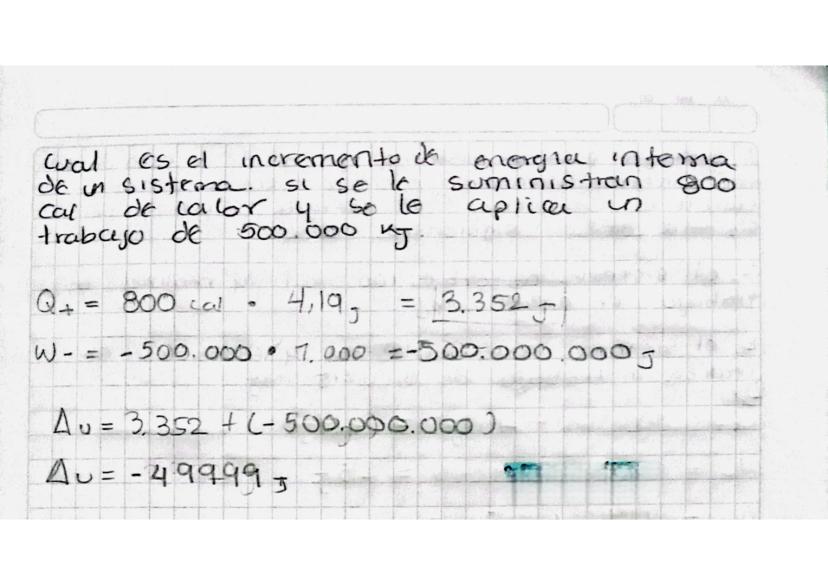 Cual es el incremento de energia interna
de un sistema. si se le suministran 800
cal de calor y se le aplica un
trabajo de 500.000 KJ.
Q+ = 800 cal • 4,19 J = 3.352 J
W- = -500.000 • 1.000 =-500.000.000 J
Δu = 3.352 + (-500.000.000)
Δu = -49999 J